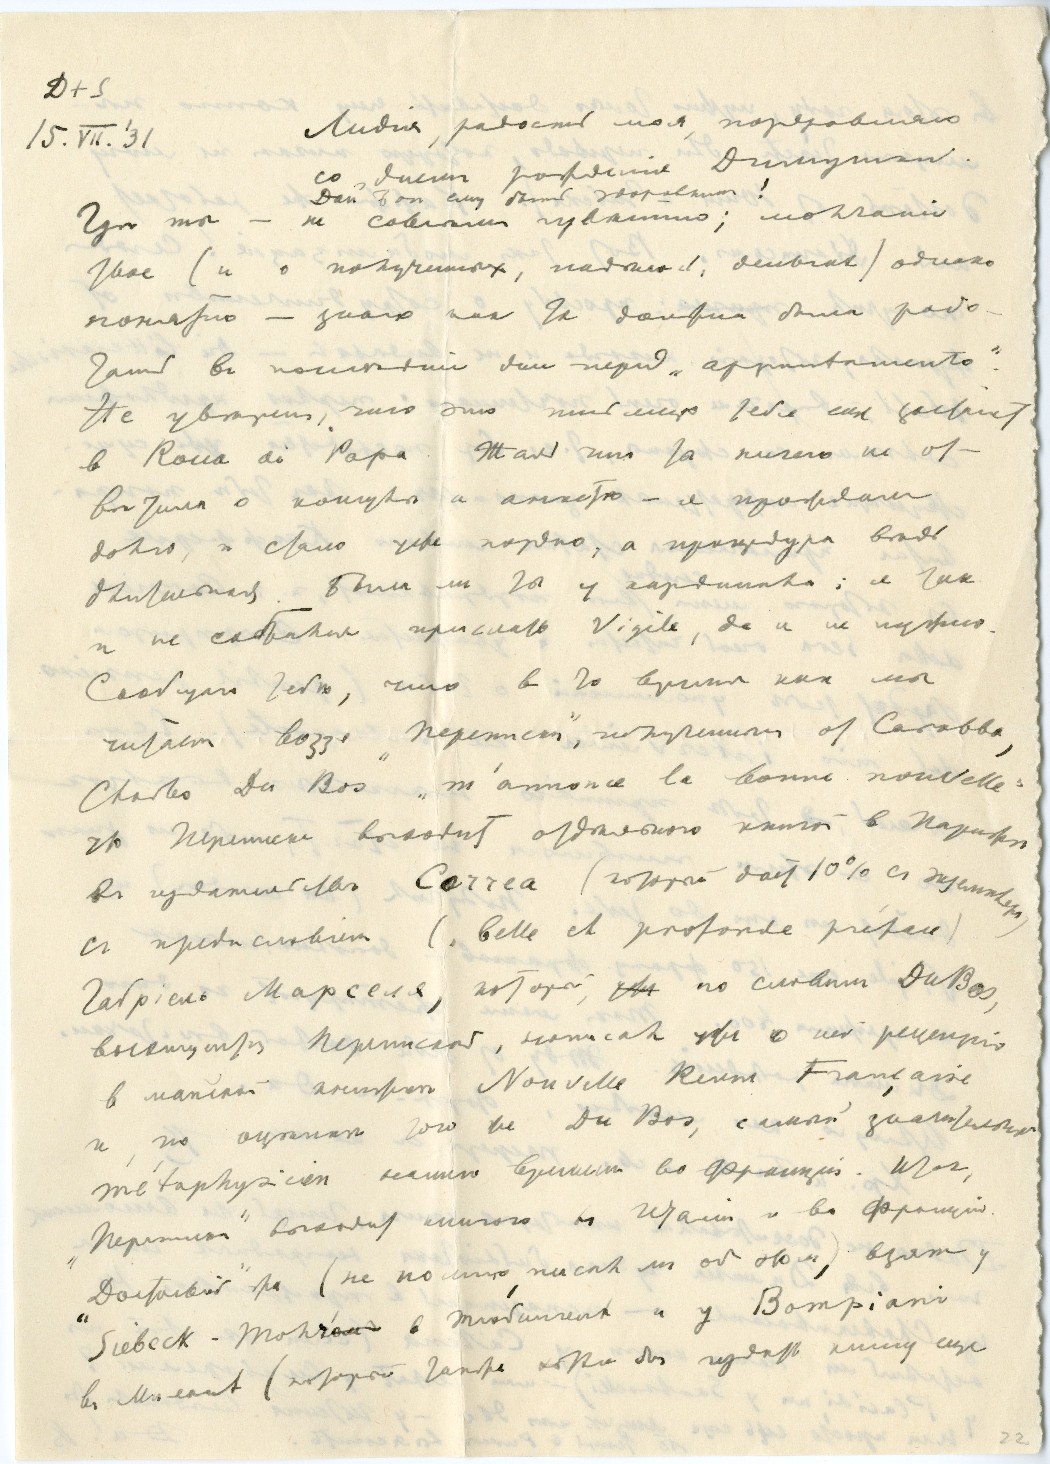 D+S
15.VII.'31
Лидия, радость моя, поздравляю
со днем рожденiя Димушки.
Дай Бог ему быть здоровым!
Где ты — не совсем ; молчанiе
твое (и о полученных, надеюсь, деньгах) однако
понятно — знаю как ты должна была рабо-
тать в последнiе дни перед „appuntamento".
Не уверен, что это письмо тебя еще застанет
в Rocca di Papa. Жаль что ты ничего не от-
ветила о и — я прождал
долго, и стало уже поздно, а процедура ведь
длительная. Была ли ты у кардинала; я так
и не собрался прислать Vigile, да и не нужно.
Сообщаю тебе, что в то время как мы
читаем bozze „Переписки", полученныя от Carabba,
Charles Du Bos „m'annonce la bonne nouvelle"
что Переписка выходит отдельною книгой в Париже
в издательстве Corrêa (который дает 10% с экземпляра)
с предисловiем („belle et profonde préface")
Габрiеля Марселя, который, по словам Du Bos,
восхищен Перепиской, написал уже о ней рецензiю
в майской книжке Nouvelle Revue Française
и, по оценке того же Du Bos, самый значительный
métaphysicien нашего времени во Францiи. Итак,
„Переписка" выходит книгою в Италiи и во Францiи.
„Достоевский" же (не помню, писал ли об этом) взят у
"Siebeck-Mohr в Тюбингене и у Bompiani
в Милане (который также хотел бы издать книгу еще
22